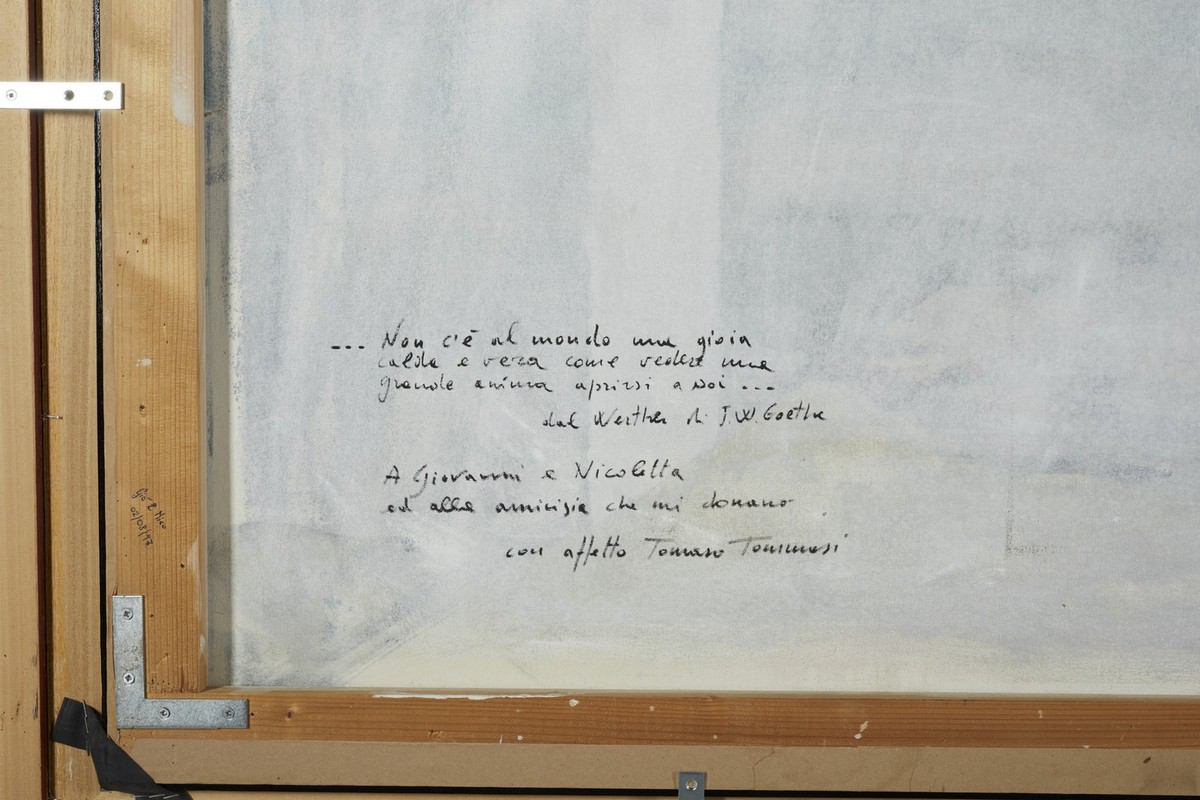 ... Non c'è al mondo una gioia
calda e vera come vedere una
grande anima aprirsi a noi ...
dal Werther di J.W. Goethe
A Giovanni e Nicoletta
ed alla amicizia che mi donano
con affetto Tomaso Tommasi
Giò e Nico
02/08/97